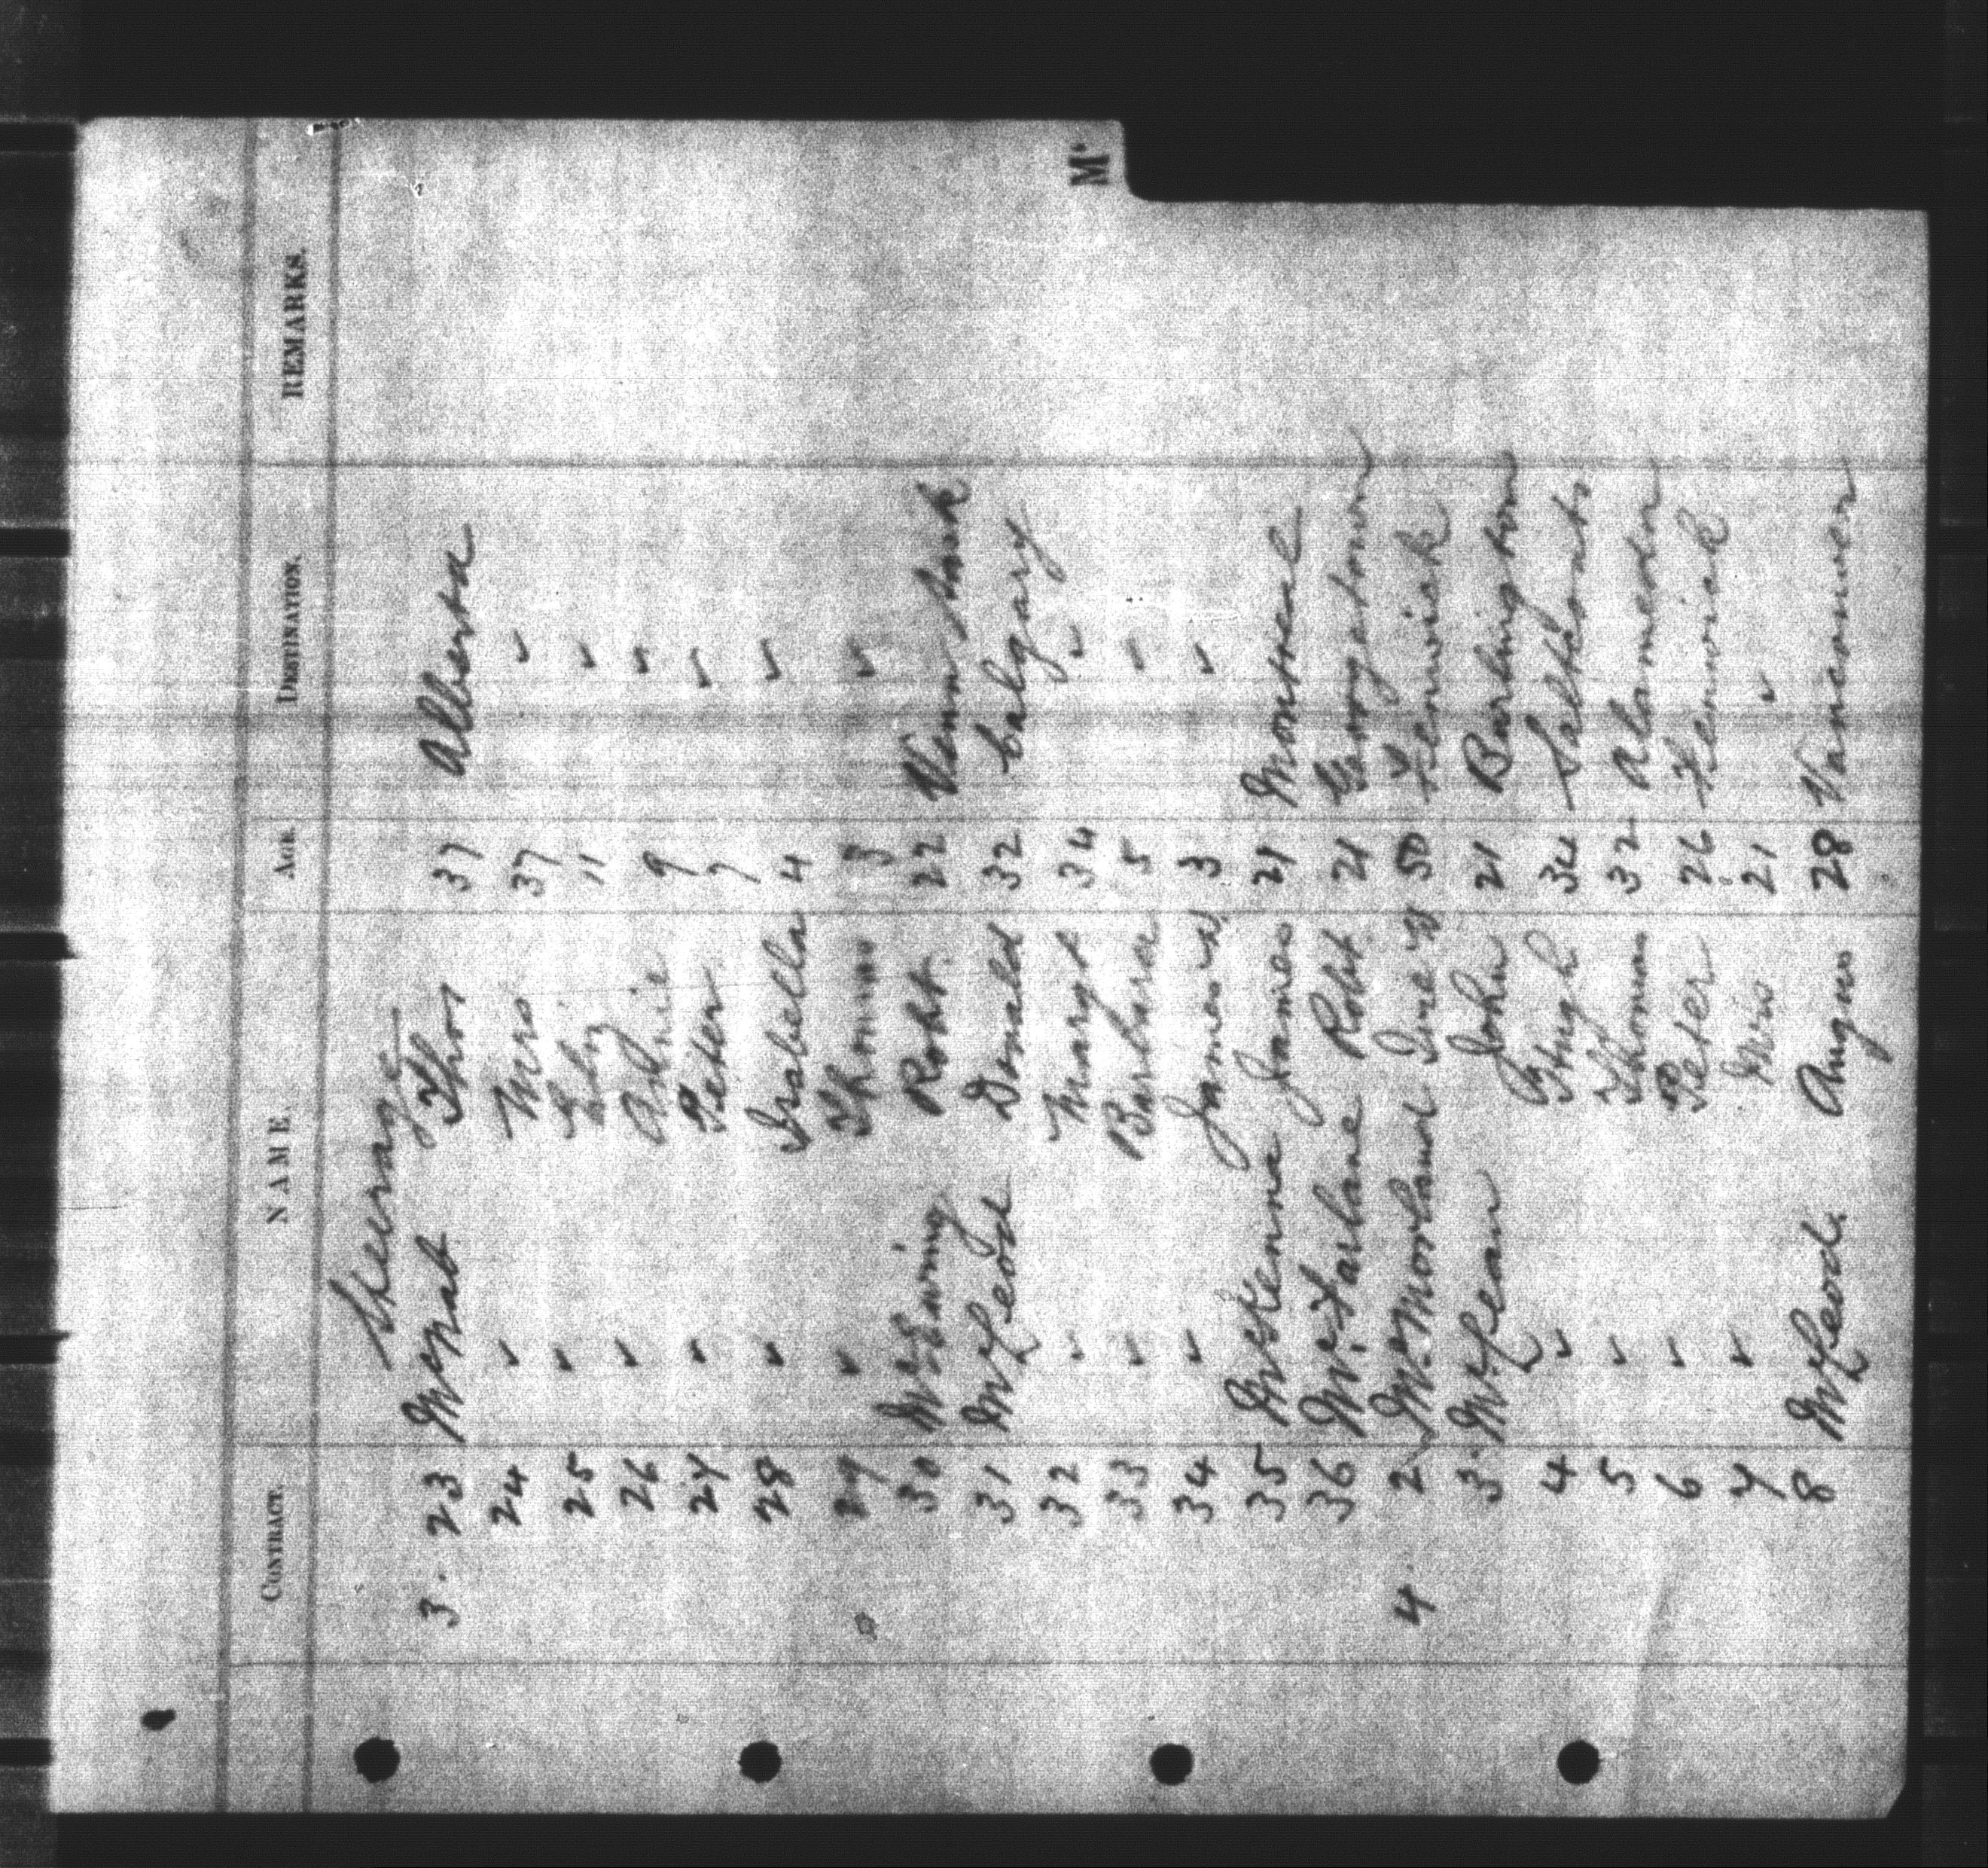 Mc
CONTRACT. NAME. AGE. DESTINATION. REMARKS.
Steerage
3. 23 McNab Thos 37 Alberta
24 ✓ Mrs 37 ✓
25 ✓ Eliz 11 ✓
26 ✓ 9 ✓
27 ✓ Peter 7 ✓
28 ✓ Isabella 4 ✓
29 ✓ Thomas 3 ✓
30 McEwing Robt. 22
31 McLeod Donald 32 Calgary
32 ✓ Margt 34 ✓
33 ✓ Barbara 5 ✓
34 ✓ James W 3 ✓
35 McKenna James 21 Montreal
36 Mc.Farlane Robt 21 Georgetown
4 2 Mc.Morland 50 Fenwick
3 McLean John 21 Burlington
4 ✓ Hugh 34 Saltcoats
5 ✓ Thomas 32 Alameda
6 ✓ Peter 26 Fenwick
7 ✓ Mrs 21 ✓
8 McLeod. Angus 28 Vancouver